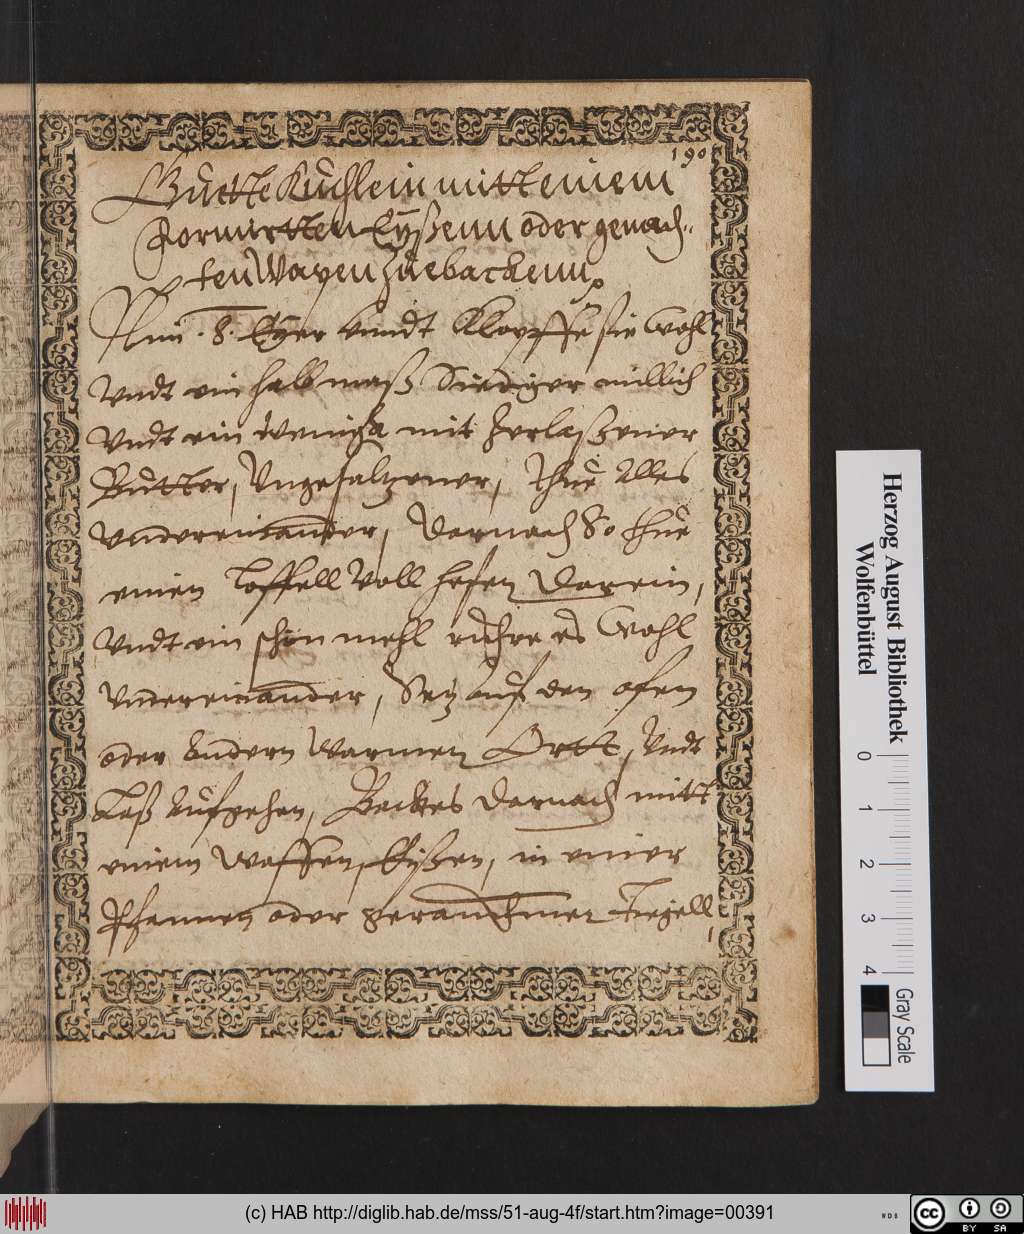 190
Gutte Küchlein mitt einem
Formirtten Eyßenn oder gemach¬
ten Wapen Zue backenn
Nim .8. Eyer vnndt Klopffe sie Wohl
Vndt ein halb maß Siediger millich
Vndt ein Weinigk mit Zerlaßener
Butter, Vngesaltzener, Thue Alles
Vndereinander, Darnach So thue
einen Löffell Voll hefen Darein,
Vndt ein schön mehl rühre es Wohl
Vndereinander, Setz Auf den ofen
oder Andern Warmen Ortt, Vndt
Laß Aufgehen, Backes Darnach mitt
einem Waffen, Eyßen, in einer
Pfannen oder geraumer Tiegell,
Herzog August Bibliothek
Wolfenbüttel
0 1 2 3 4
Gray Scale
(c) HAB http://diglib.hab.de/mss/51-aug-4f/start.htm?image=00391
WDB
cc BY SA